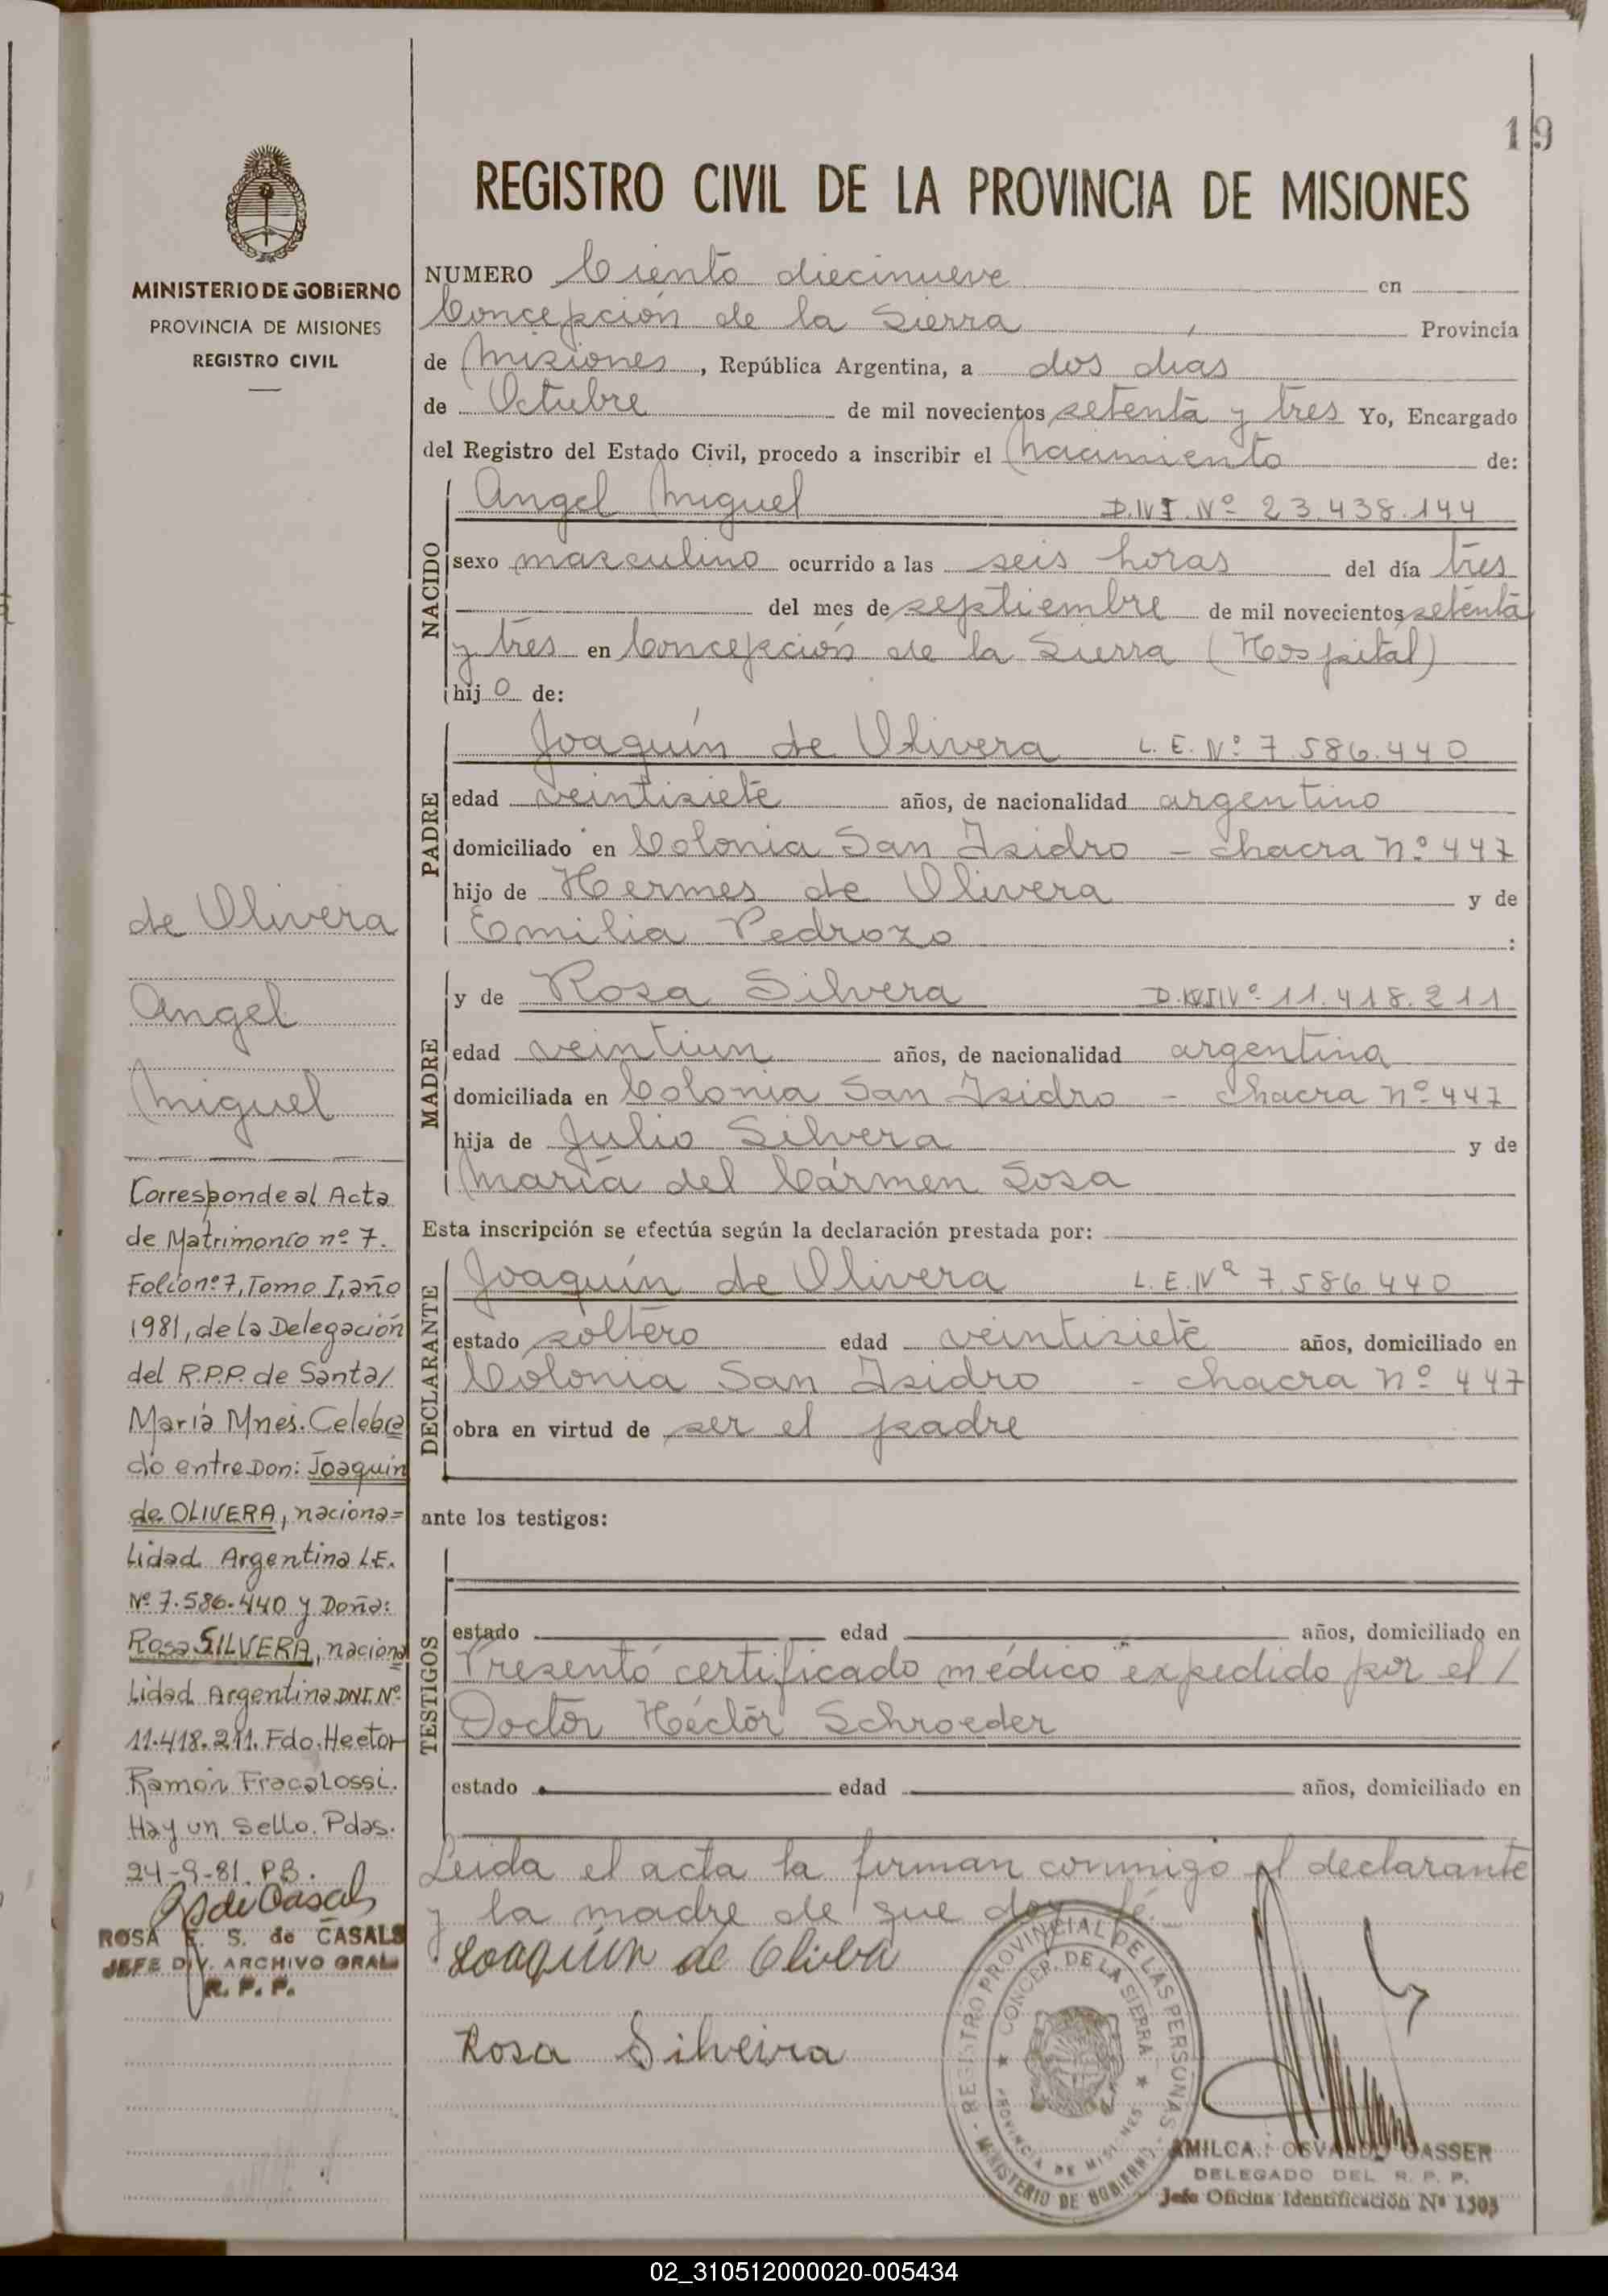 19
REGISTRO CIVIL DE LA PROVINCIA DE MISIONES
MINISTERIO DE GOBIERNO
PROVINCIA DE MISIONES
REGISTRO CIVIL
NUMERO Ciento diecinueve en
Concepción de la Sierra, Provincia
de Misiones, República Argentina, a dos días
de Octubre de mil novecientos setenta y tres Yo, Encargado
del Registro del Estado Civil, procedo a inscribir el Nacimiento de:
NACIDO
Angel Miguel D.N.I. Nº 23.438.144
sexo masculino ocurrido a las seis horas del día tres
del mes de septiembre de mil novecientos setenta
y tres en Concepción de la Sierra (Hospital)
hijo de:
PADRE
Joaquín de Olivera L.E. Nº 7.586.440
edad veintisiete años, de nacionalidad argentino
domiciliado en Colonia San Isidro - Chacra Nº 447
hijo de Hermes de Olivera y de
Emilia Pedrozo :
MADRE
y de Rosa Silvera D.N.I Nº 11.418.211
edad veintiun años, de nacionalidad argentina
domiciliada en Colonia San Isidro - Chacra Nº 447
hija de Julio Silvera y de
María del Cármen Sosa
Esta inscripción se efectúa según la declaración prestada por:
DECLARANTE
Joaquín de Olivera L.E. Nº 7.586.440
estado soltero edad veintisiete años, domiciliado en
Colonia San Isidro - Chacra Nº 447
obra en virtud de ser el padre
ante los testigos:
TESTIGOS
estado edad años, domiciliado en
Presentó certificado médico expedido por el /
Doctor Héctor Schroeder
estado edad años, domiciliado en
Leida el acta la firman conmigo el declarante
y la madre de que doy fé.
Joaquín de Oliveu
Rosa Silveira
REGISTRO PROVINCIAL DE LAS PERSONAS - MINISTERIO DE GOBIERNO -
CONCEP. DE LA SIERRA
PROVINCIA DE MISIONES
AMILCAR OSVALDO GASSER
DELEGADO DEL R. P. P.
Jefe Oficina Identificación Nº 1505
de Olivera
Angel
Miguel
Corresponde al Acta
de Matrimonio nº 7.
Folio nº 7, Tomo I, año
1981, de la Delegación
del R.P.P. de Santa/
María Mnes. Celebra
do entre Don: Joaquin
de OLIVERA, naciona=
lidad Argentina L.E.
Nº 7.586.440 y Doña:
Rosa SILVERA, naciona
lidad Argentina DNI. Nº
11.418.211. Fdo. Hector
Ramón Fracalossi.
Hay un sello. Pdas.
24-9-81. P.B.
RS de Casals
ROSA E. S. de CASALS
JEFE DIV. ARCHIVO GRAL
R. P. P.
02_310512000020-005434